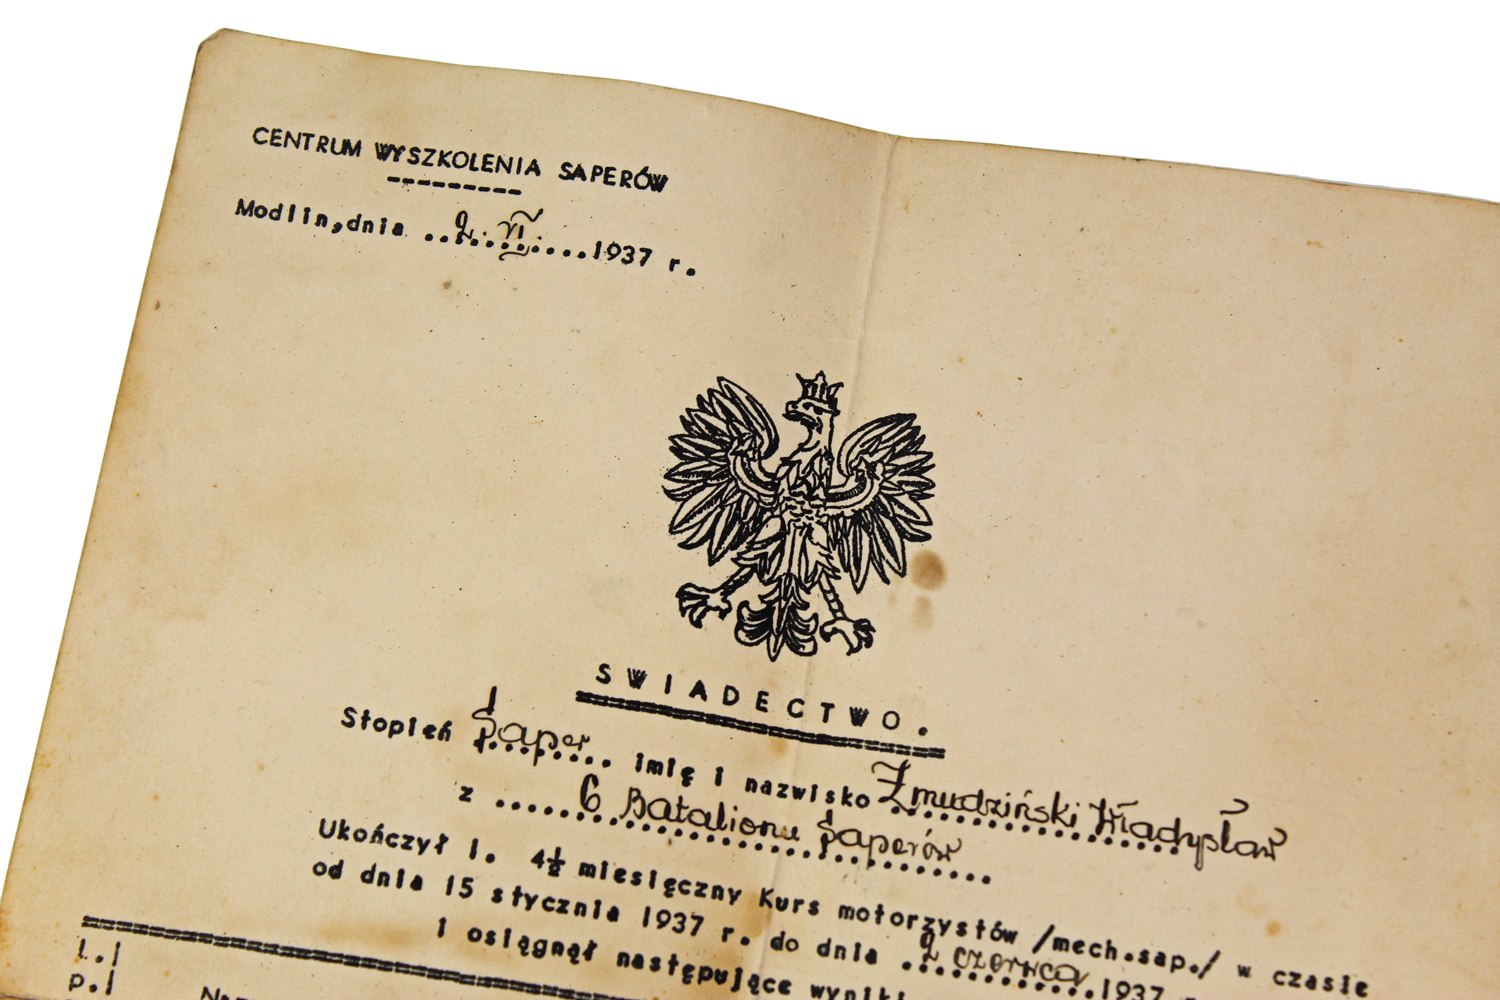 CENTRUM WYSZKOLENIA SAPERÓW
Modlin,dnia ..2.VI.....1937 r.
SWIADECTWO.
Stopień Saper imię i nazwisko Żmudziński Władysław
z ..... 6 Batalionu Saperów
Ukończył I. 4½ miesięczny Kurs motorzystów /mech.sap./ w czasie
od dnia 15 stycznia 1937 r. do dnia 2 czerwca 1937
i osiągnął następujące wyniki
l.|
p.|